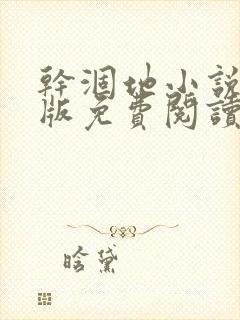 幹涸地小說
版免費閱讀
晗黛